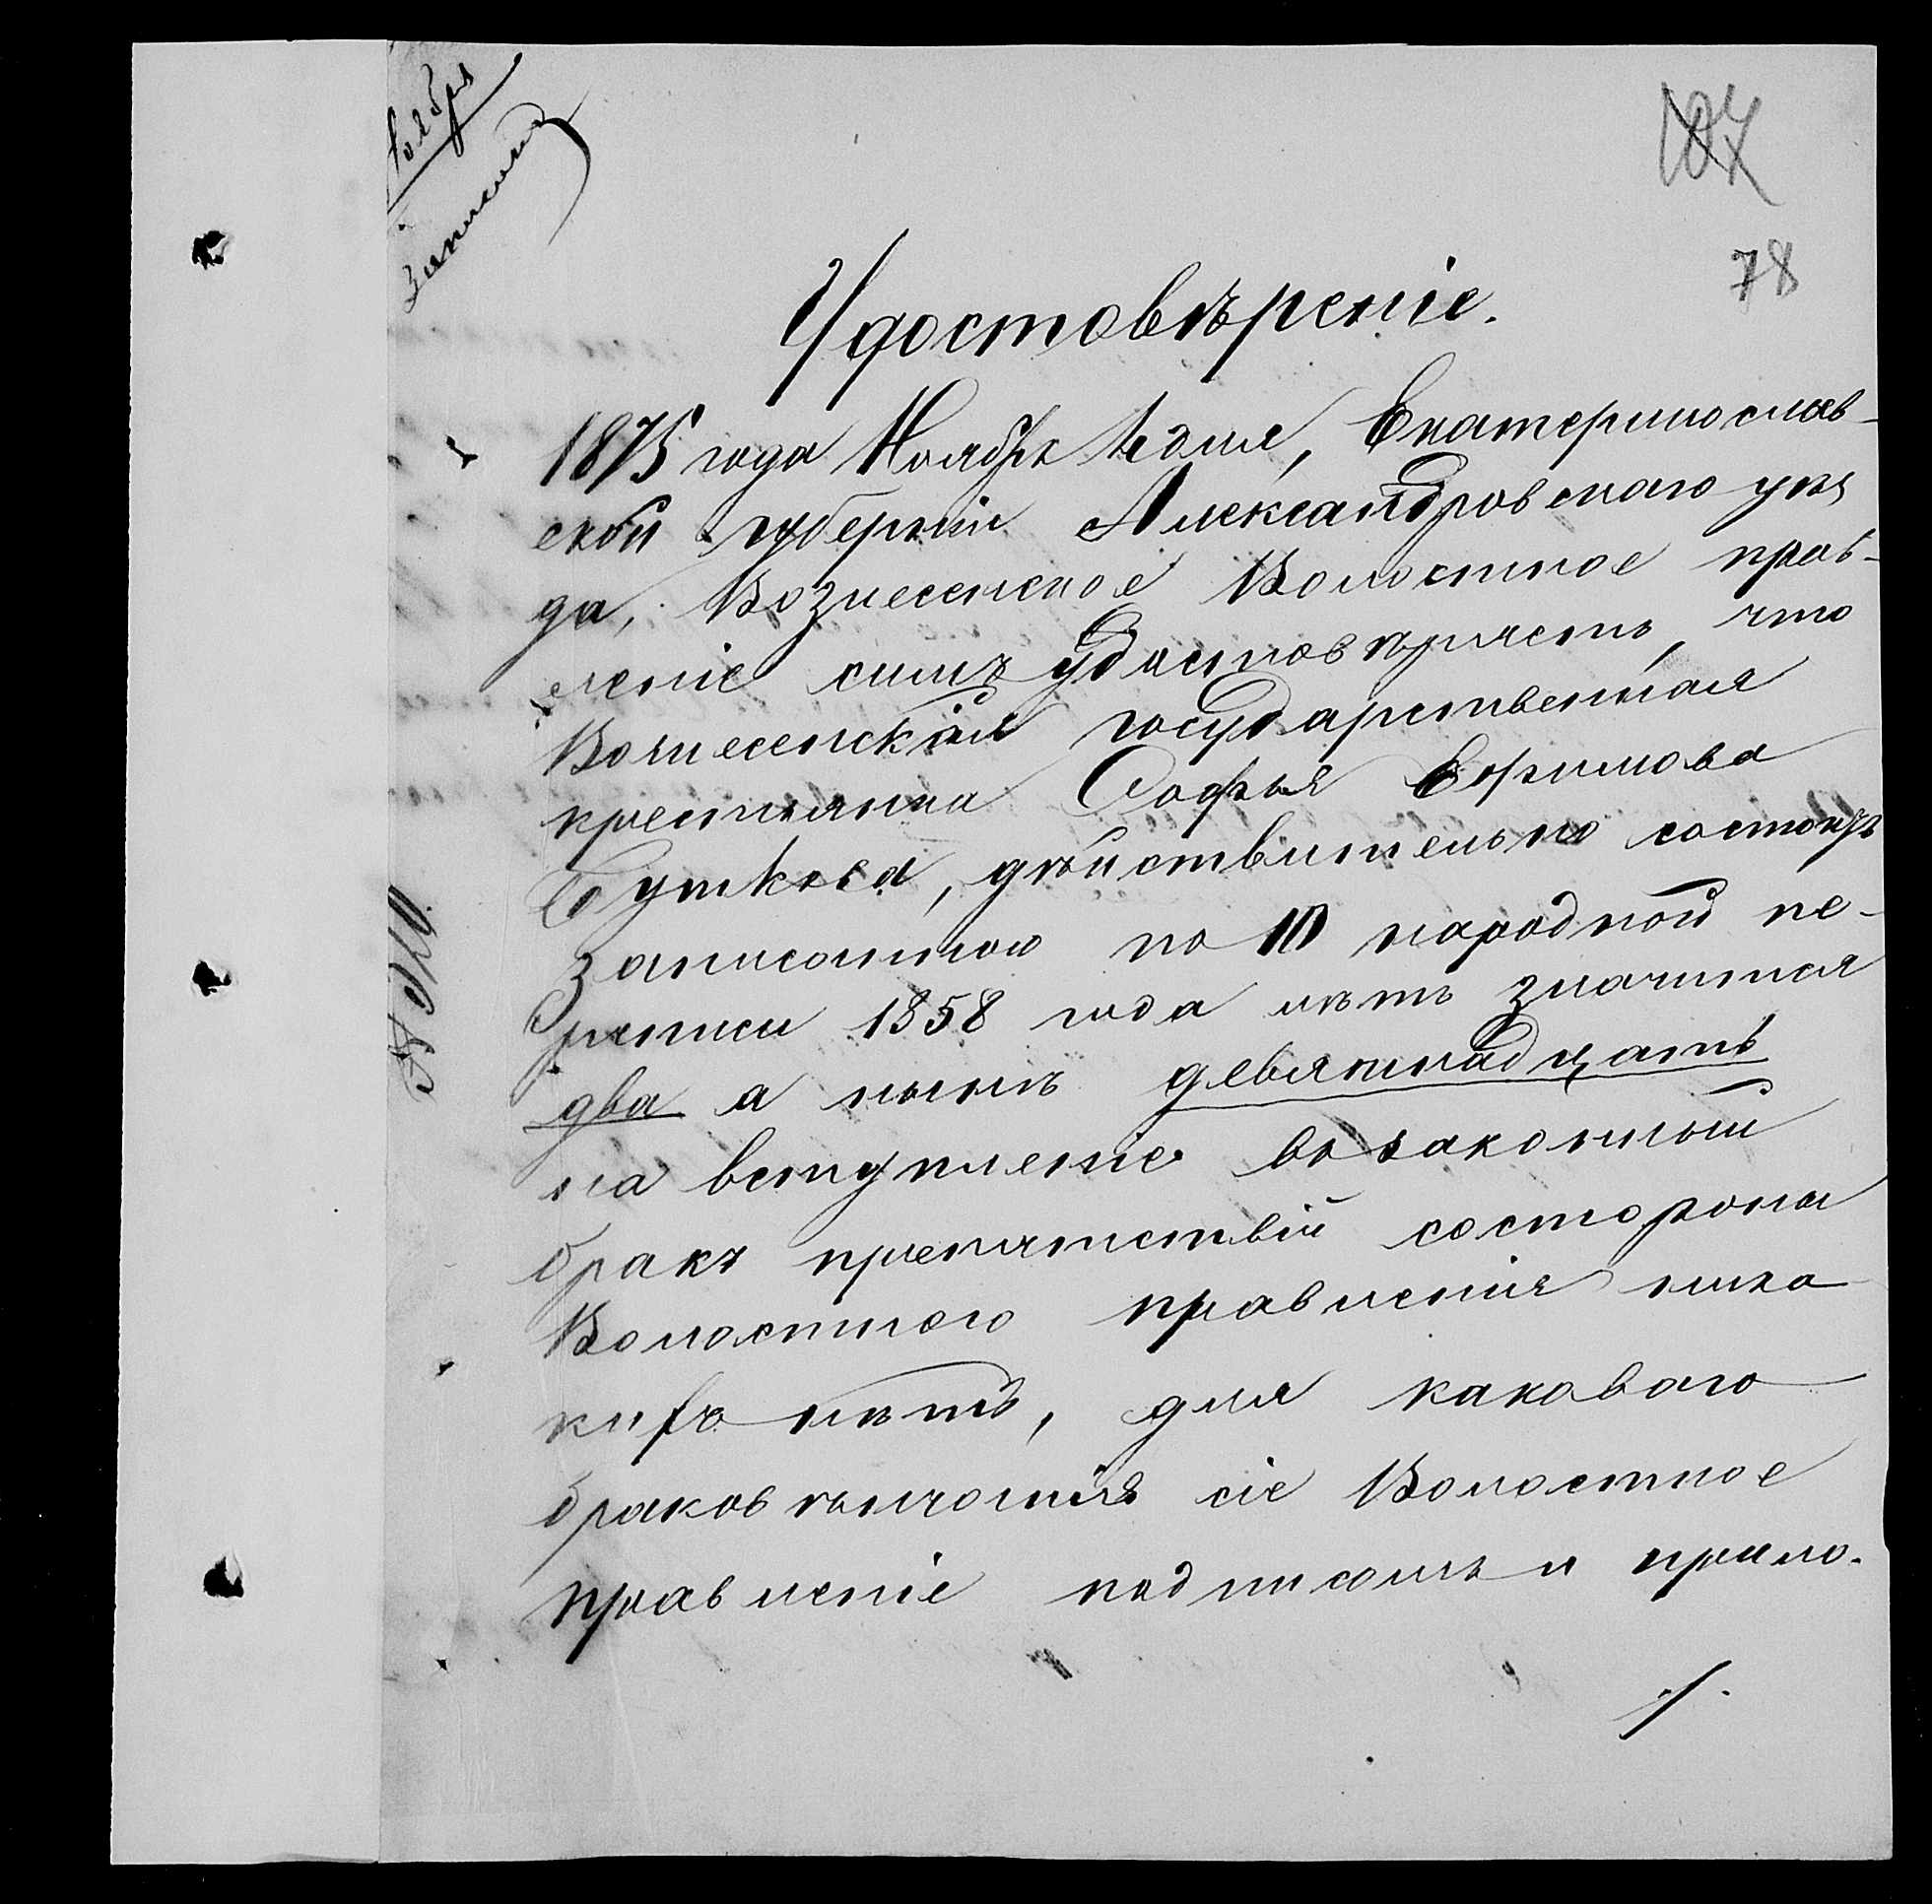 Ноября
107
78
Удостовѣреніе.
1875 года Ноября дня, Екатеринослав-
ской губерніи Александровскаго уѣз
да, Вознесенское Волостное прав-
леніе симъ удостовѣряетъ, что
Вознесенская государственная
крестьянка Софья Ефимова
Буткова, дѣйствительно состоитъ
записанною по 10 народной пе-
реписи 1858 года лѣтъ значится
два а нынѣ девятнадцать
на вступленіе во законный
бракъ препятствій состороны
Волостного правленія ника
кихъ нѣтъ, для каковаго
браковѣнчанія сіе Волостное
правленіе подписомъ и прило-
./.